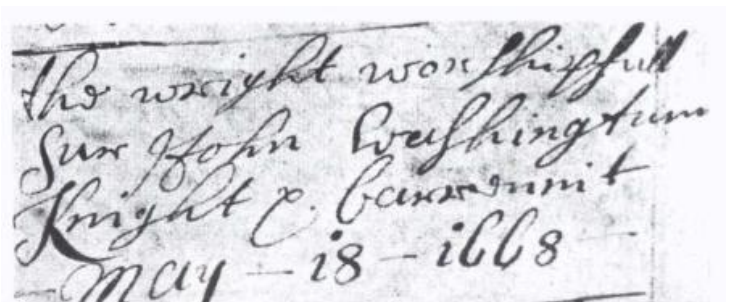 the wright worshipfull
Sur John Washingtum
Knight & barrennit
May - 18 - 1668